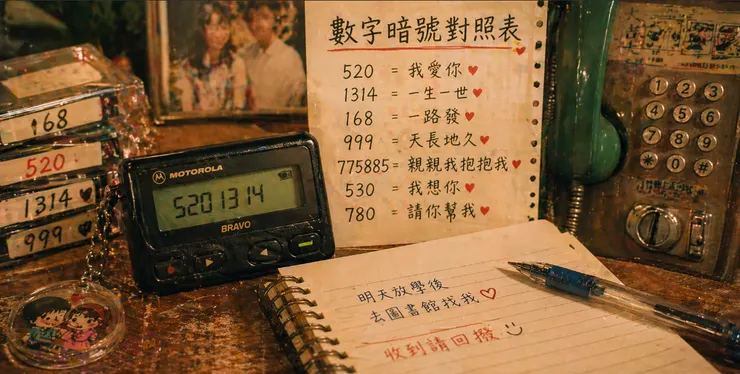 數字暗號對照表
520 = 我愛你
1314 = 一生一世
168 = 一路發
999 = 天長地久
775885 = 親親我抱抱我
530 = 我想你
780 = 請你幫我
168
520
1314
999
MOTOROLA
5201314
BRAVO
明天放學後
去圖書館找我
收到請回撥
1 2 3
4 5 6
7 8 9
* 0 #